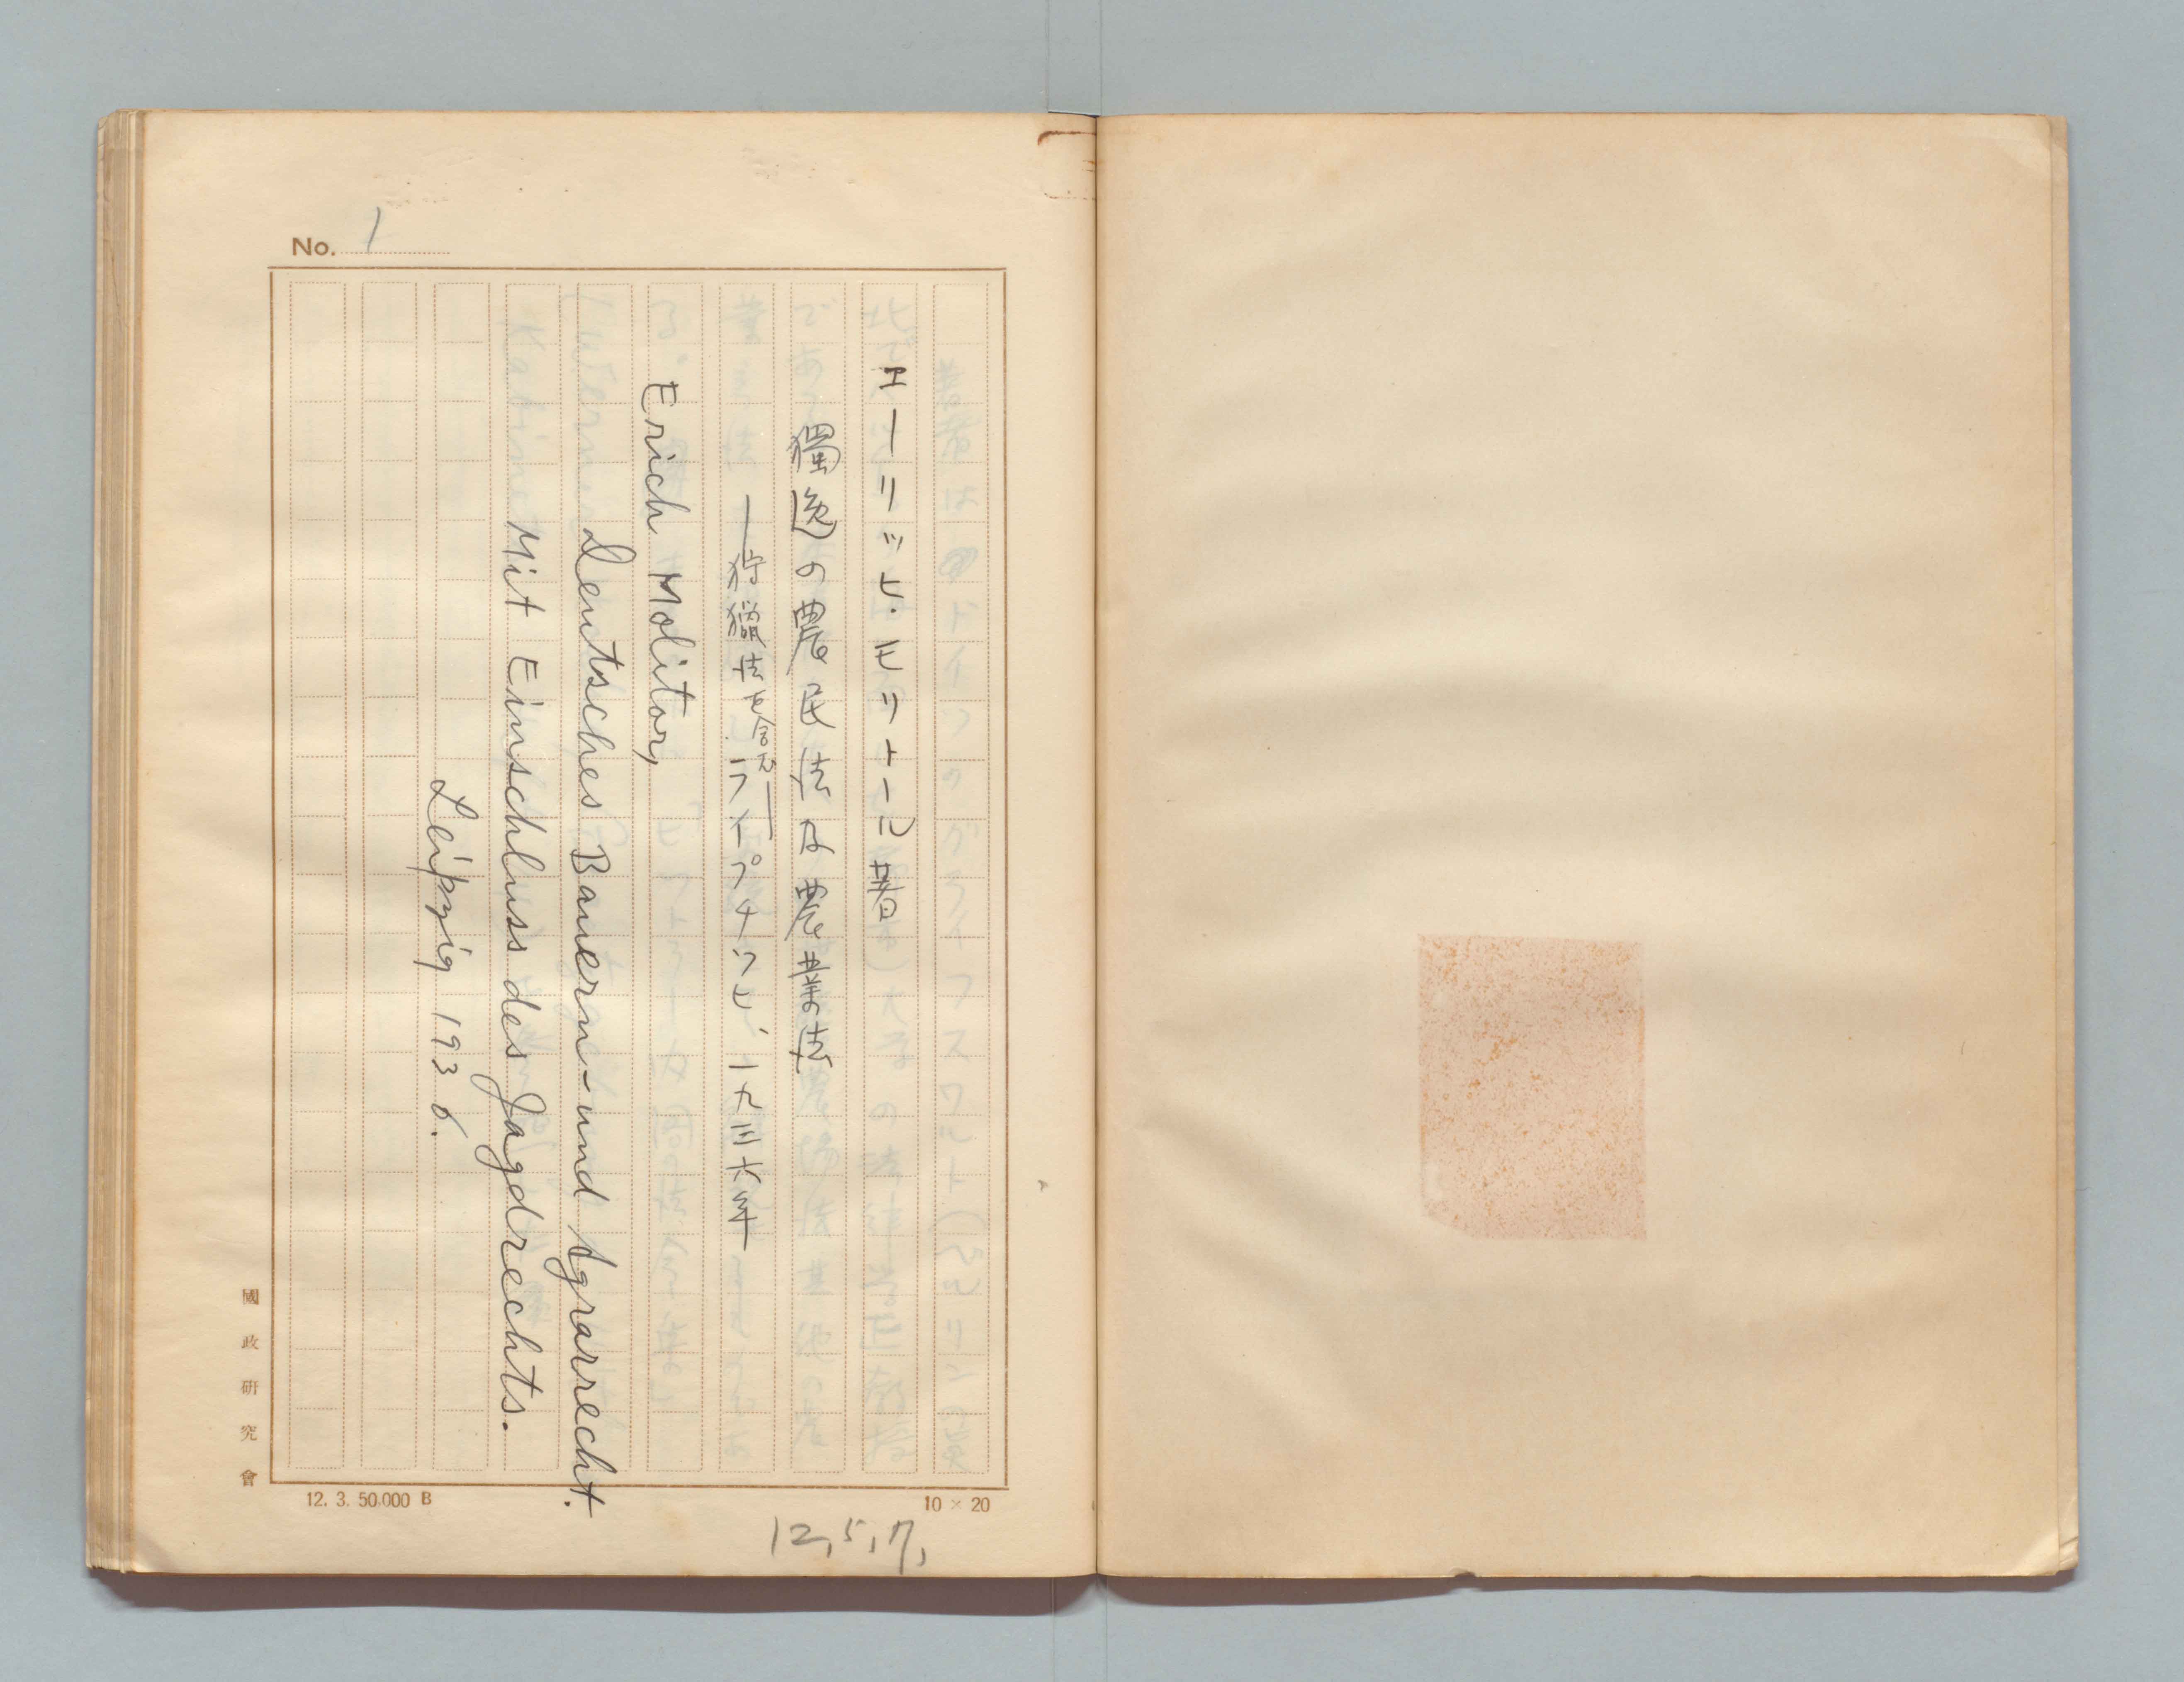 No. 1
エーリッヒ・モリトール著
獨逸の農民法及農業法
―狩猟法を含む―ライプチッヒ、一九三六年
Erich Molitor,
Deutsches Bauern- und Agrarrecht.
Mit Einschluss des Jagdrechts.
Leipzig 1936.
國政研究會
12. 3. 50,000 B
10 × 20
12, 5, 7,